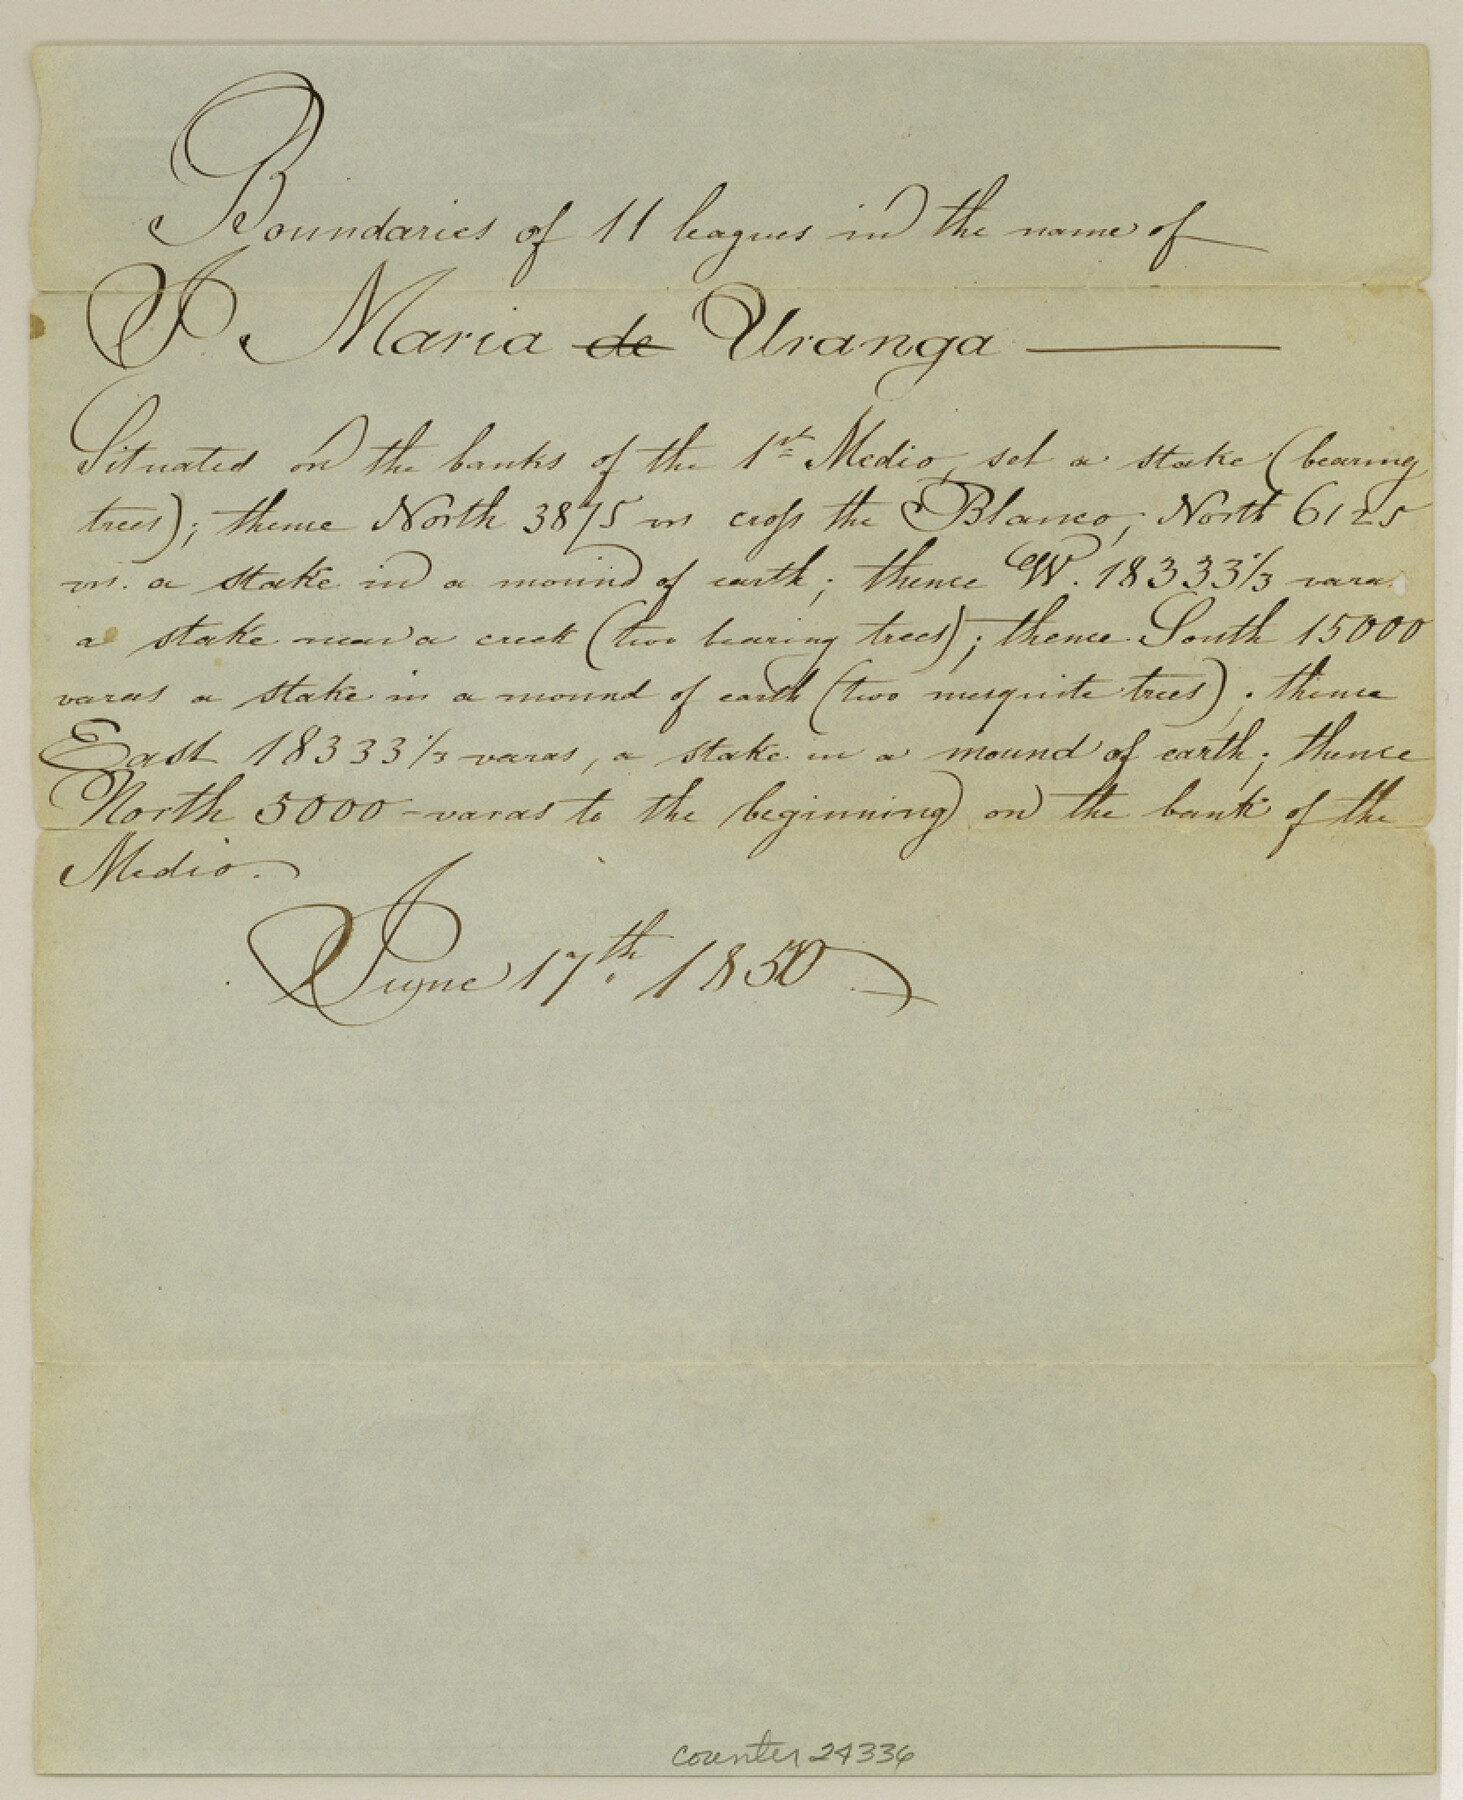 Boundaries of 11 leagues in the name of
J Maria de Uranga
Situated on the banks of the 1st Medio, set a stake (bearing
trees); thence North 3875 vrs cross the Blanco; North 6125
vrs. a stake in a mound of earth; thence W. 18333⅓ varas
a stake near a creek (two bearing trees); thence South 15000
varas a stake in a mound of earth (two mesquite trees); thence
East 18333⅓ varas, a stake in a mound of earth; thence
North 5000 varas to the beginning on the bank of the
Medio.
June 17th 1850
counter 24336